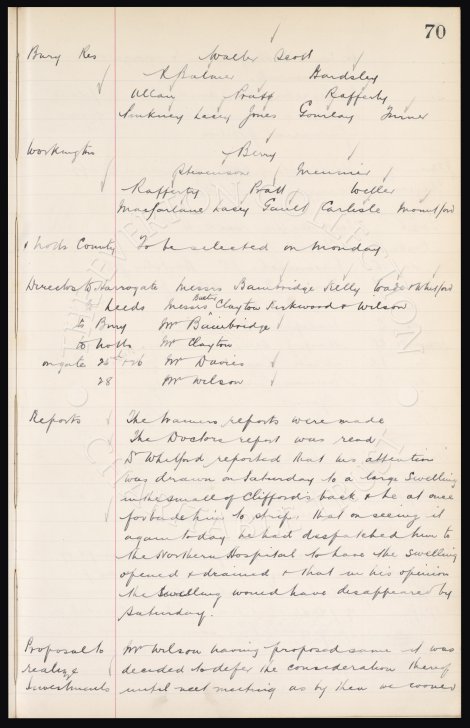 70
Bury Res Walter Scott
R Balmer Bardsley
Allan Pratt Rafferty
Pinkney Lacey Jones Gourlay Turner
Workington Berry
Stevenson Meunier
Rafferty Pratt Weller
Macfarlane Lacey Gault Carlisle Mountford
v Notts County To be selected on Monday
Directors to Harrogate Messrs Bainbridge Kelly Wade & Whitford
to Leeds Messrs Clayton Kirkwood & Wilson
to Bury Mr Bainbridge
to Notts Mr Clayton
on gate 25th & 26 Mr Davies
28 Mr Wilson
Reports The trainers reports were made
The Doctors report was read
Dr Whitford reported that his attention
was drawn on Saturday to a large Swelling
in the small of Cliffords back & he at once
forbade him to strip, that on seeing it
again today he had despatched him to
the Northern Hospital to have the Swelling
opened & drained & that in his opinion
the Swelling would have disappeared by
Saturday.
Proposal to Mr Wilson having proposed same it was
realize decided to defer the consideration thereof
Investments until next meeting as by then we
THE EVERTON COLLECTION